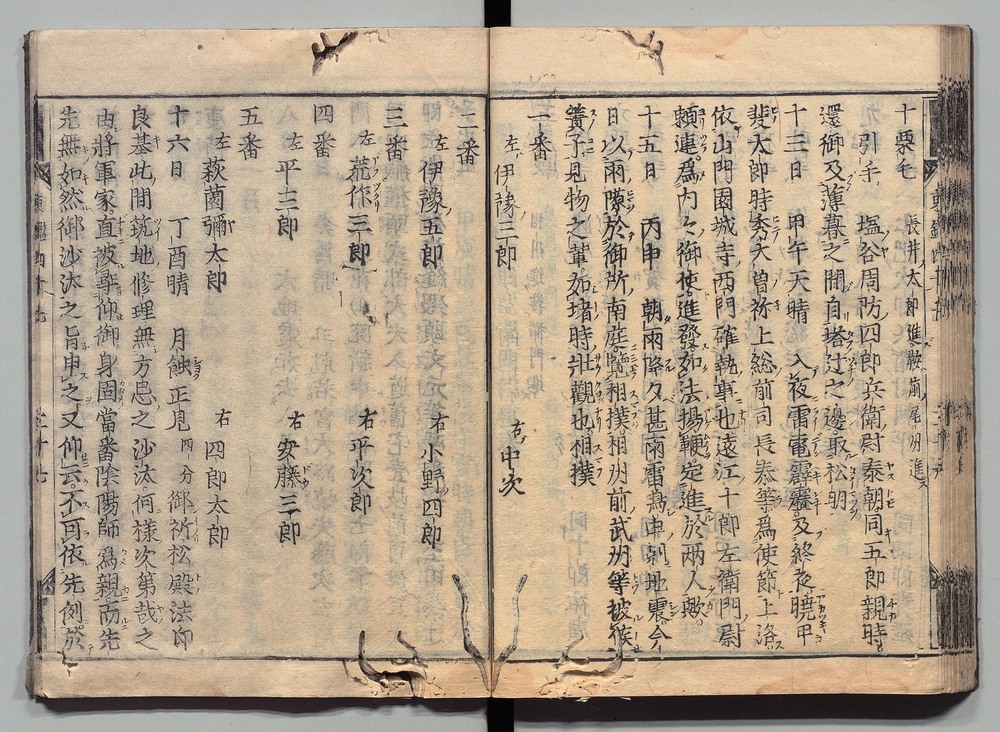 十 栗毛 長井太郎進鞍前尾州進
引手 塩谷周防四郎兵衛尉泰朝同五郎親時
還御及薄暮之間自塔辻之邊取松明
十三日 甲午天晴 入夜雷電霹靂及終夜曉甲
斐太郎時秀大曽祢上総前司長泰等為使節上洛
依山門園城寺西門確執事也遠江十郎左衛門尉
頼連為内々御使進發如法揚鞭定進於両人歟
十五日 丙申 朝雨降夕甚雨雷鳴申剋地震今
日以雨隙於御所南庭覧相撲相州前武州等被候
簀子見物之輩如堵時壮觀也相撲
一番
左 伊豫三郎 右 中次
二番
左 伊豫五郎 右 小野四郎
三番
左 荒作三郎 右 平次郎
四番
左 平三郎 右 安藤三郎
五番
左 萩薗彌太郎 右 四郎太郎
十六日 丁酉晴 月蝕正見四分御祈松殿法印
良基此間築地修理無方忌之沙汰何様次第哉之
由將軍家直被仰御身固當番陰陽師為親而先
先無如然御沙汰之旨申之又仰云不可依先例於